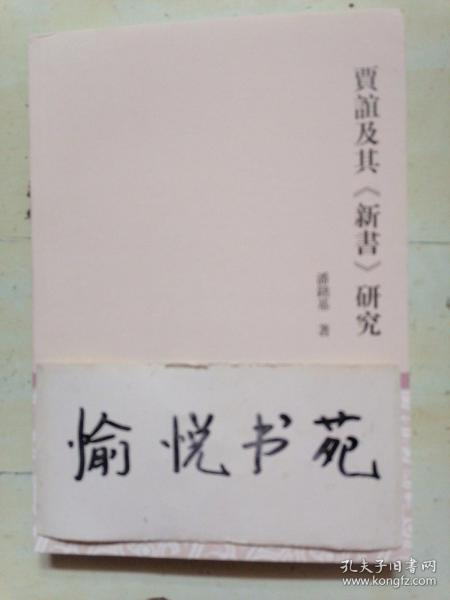 賈誼及其《新書》研究
潘銘基 著
愉悦书苑
孔夫子旧书网
www.kongfz.com